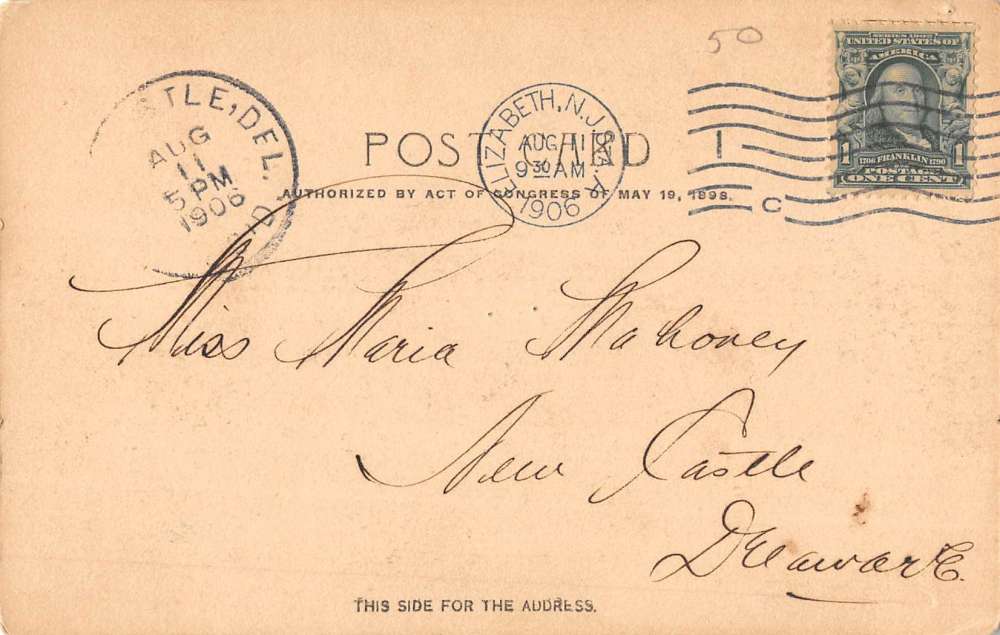 50
SERIES 1902
UNITED STATES OF
AMERICA
1 1706 FRANKLIN 1790 1
POSTAGE
ONE CENT
TLE, DEL.
AUG
11
5 PM
1906
ELIZABETH, N.J.
AUG 11
9 30 AM
1906
1
C
POST CARD
AUTHORIZED BY ACT OF CONGRESS OF MAY 19, 1898.
Miss Maria Mahoney
New Castle
Delaware.
THIS SIDE FOR THE ADDRESS.